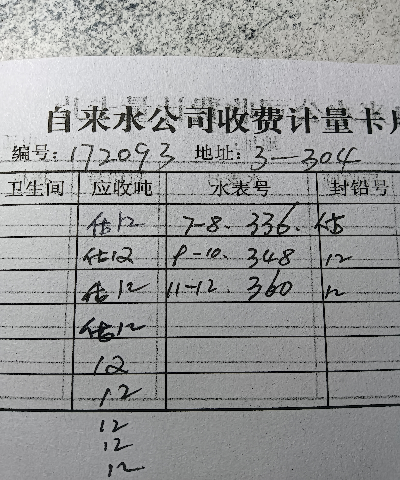 自来水公司收费计量卡片
编号:172093 地址:3-304
卫生间 应收吨 水表号 封铅号
估12 7-8. 336. 估
估12 9-10. 348 12
估12 11-12. 360 12
估12
12
12
12
12
12